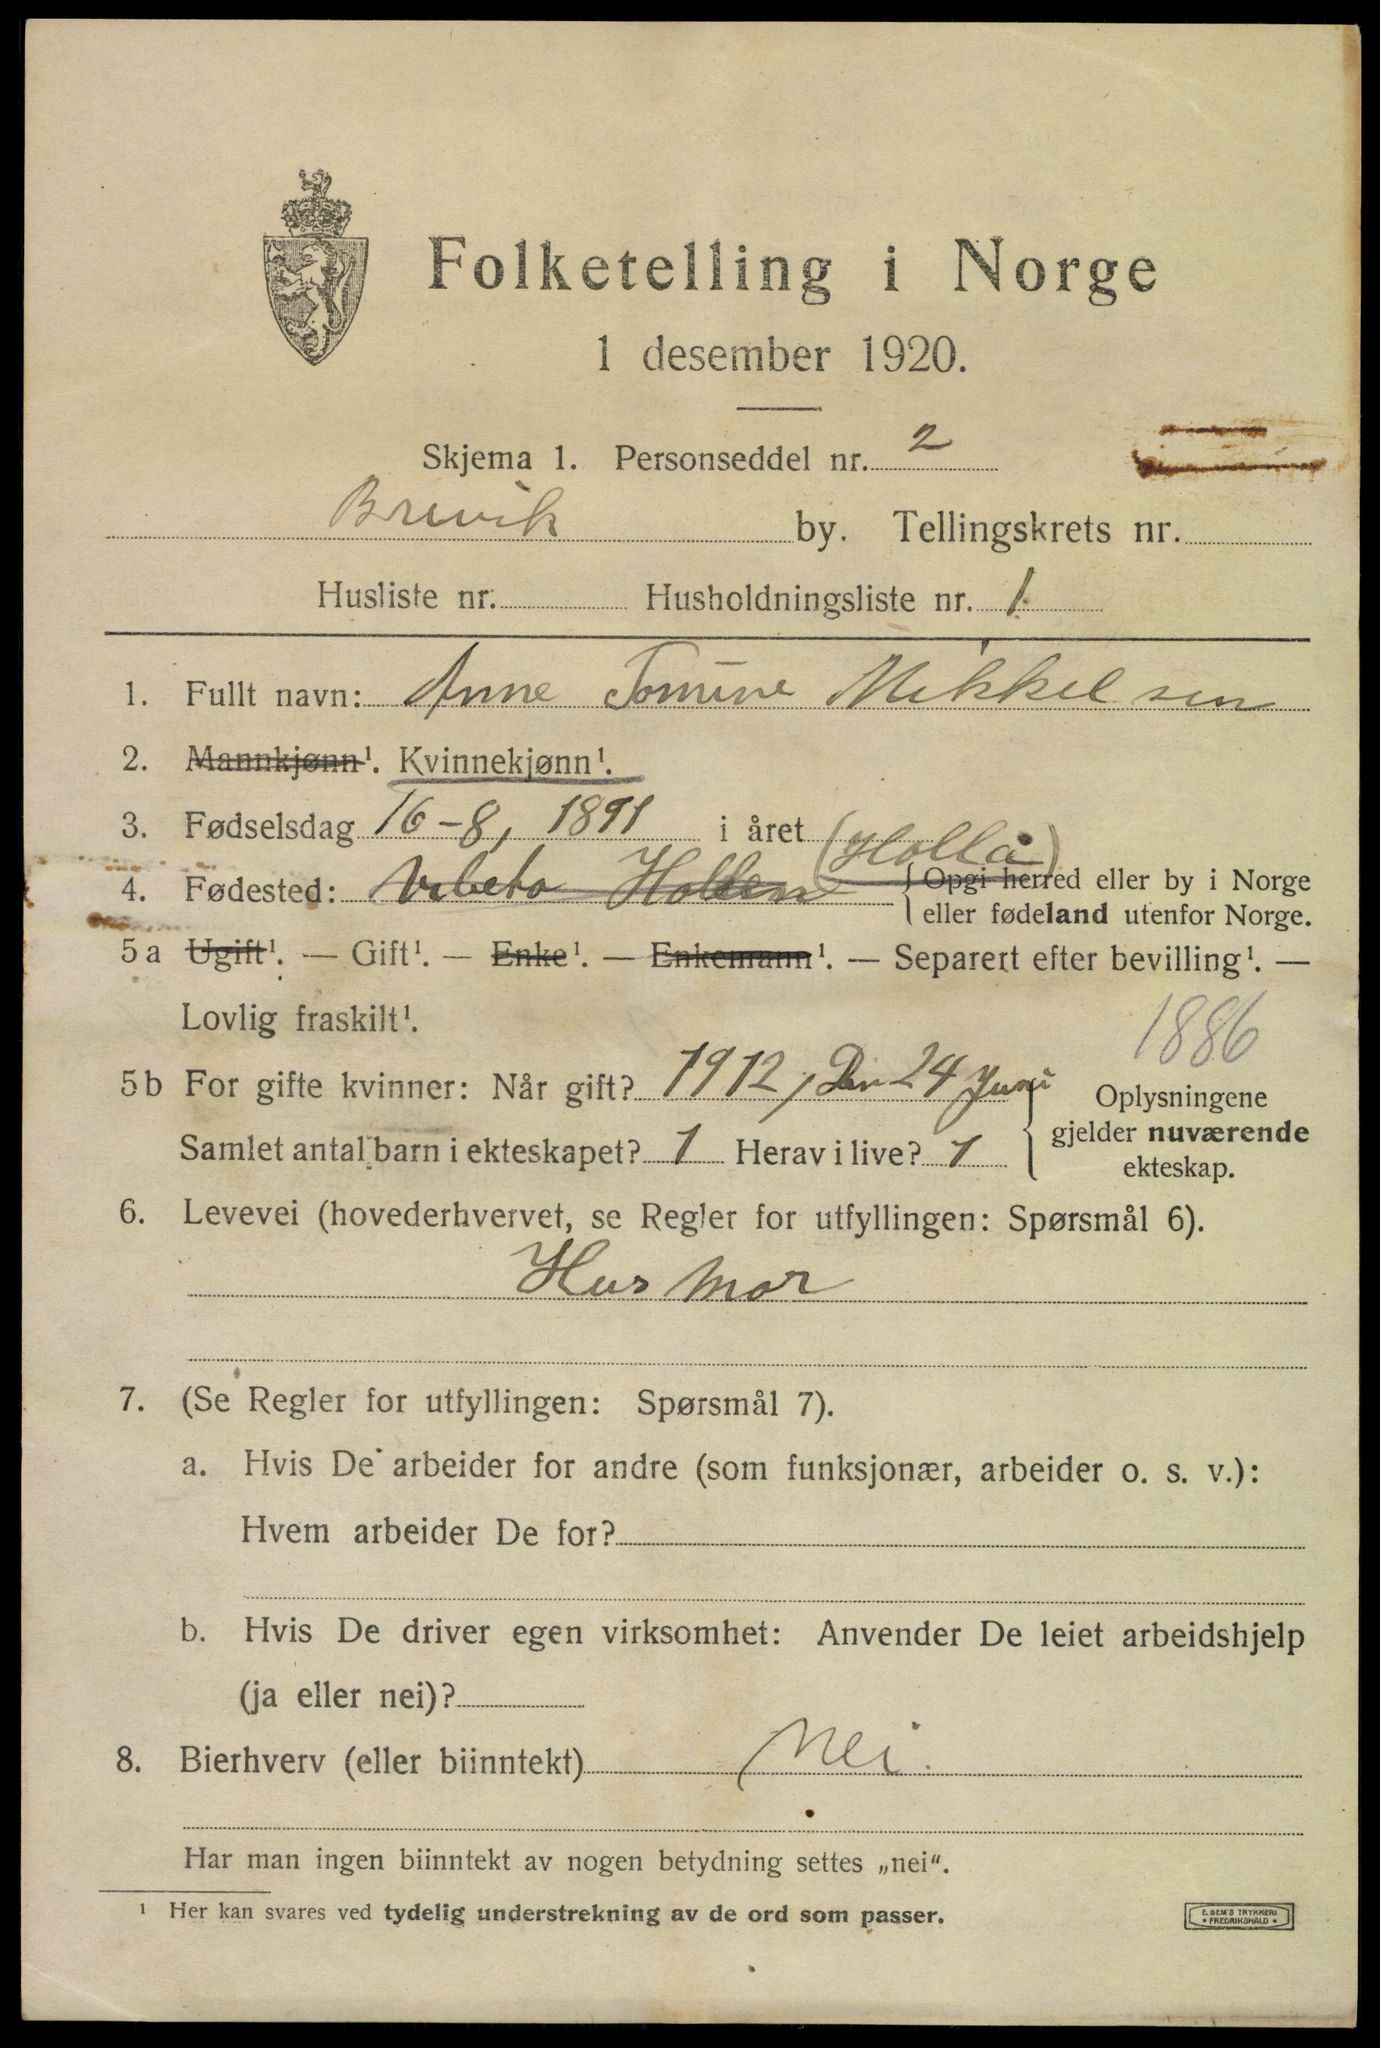 Folketelling i Norge
1 desember 1920.
Skjema 1. Personseddel nr. 2
Brevik by. Tellingskrets nr.
Husliste nr. Husholdningsliste nr. 1
1. Fullt navn: Anne Tomine Mikkelsen
2. Mannkjønn¹. Kvinnekjønn¹.
3. Fødselsdag 16-8, 1891 i året
(Hollå)
4. Fødested: Hollen { Opgi herred eller by i Norge
eller fødeland utenfor Norge.
5 a Ugift¹. — Gift¹. — Enke¹. — Enkemann¹. — Separert efter bevilling¹. —
Lovlig fraskilt¹.
1886
5 b For gifte kvinner: Når gift? 1912, Den 24 Juni
Samlet antal barn i ekteskapet? 1 Herav i live? 1
Oplysningene
gjelder nuværende
ekteskap.
6. Levevei (hovederhvervet, se Regler for utfyllingen: Spørsmål 6).
Hus Mor
7. (Se Regler for utfyllingen: Spørsmål 7).
a. Hvis De arbeider for andre (som funksjonær, arbeider o. s. v.):
Hvem arbeider De for?
b. Hvis De driver egen virksomhet: Anvender De leiet arbeidshjelp
(ja eller nei)?
8. Bierhverv (eller biinntekt) Nei.
Har man ingen biinntekt av nogen betydning settes „nei".
¹ Her kan svares ved tydelig understrekning av de ord som passer.
E. SEM'S TRYKKERI
• FREDRIKSHALD •